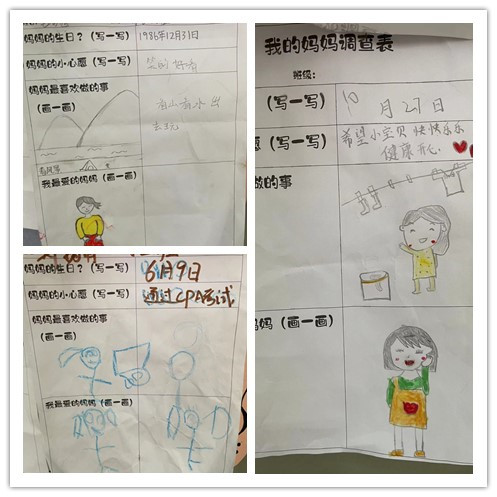 妈妈的生日？（写一写） 1986年12月31日
妈妈的小心愿（写一写）
妈妈最喜欢做的事
（画一画）
有山有水 出
去玩
我最爱的妈妈（画一画）
妈妈的生日？（写一写） 6月9日
妈妈的小心愿（写一写） 通过CPA考试
妈妈最喜欢做的事
（画一画）
我最爱的妈妈（画一画）
我的妈妈调查表
班级：
（写一写） 10月27日
愿（写一写） 希望小宝贝快快乐乐
健康开心
做的事
妈妈（画一画）